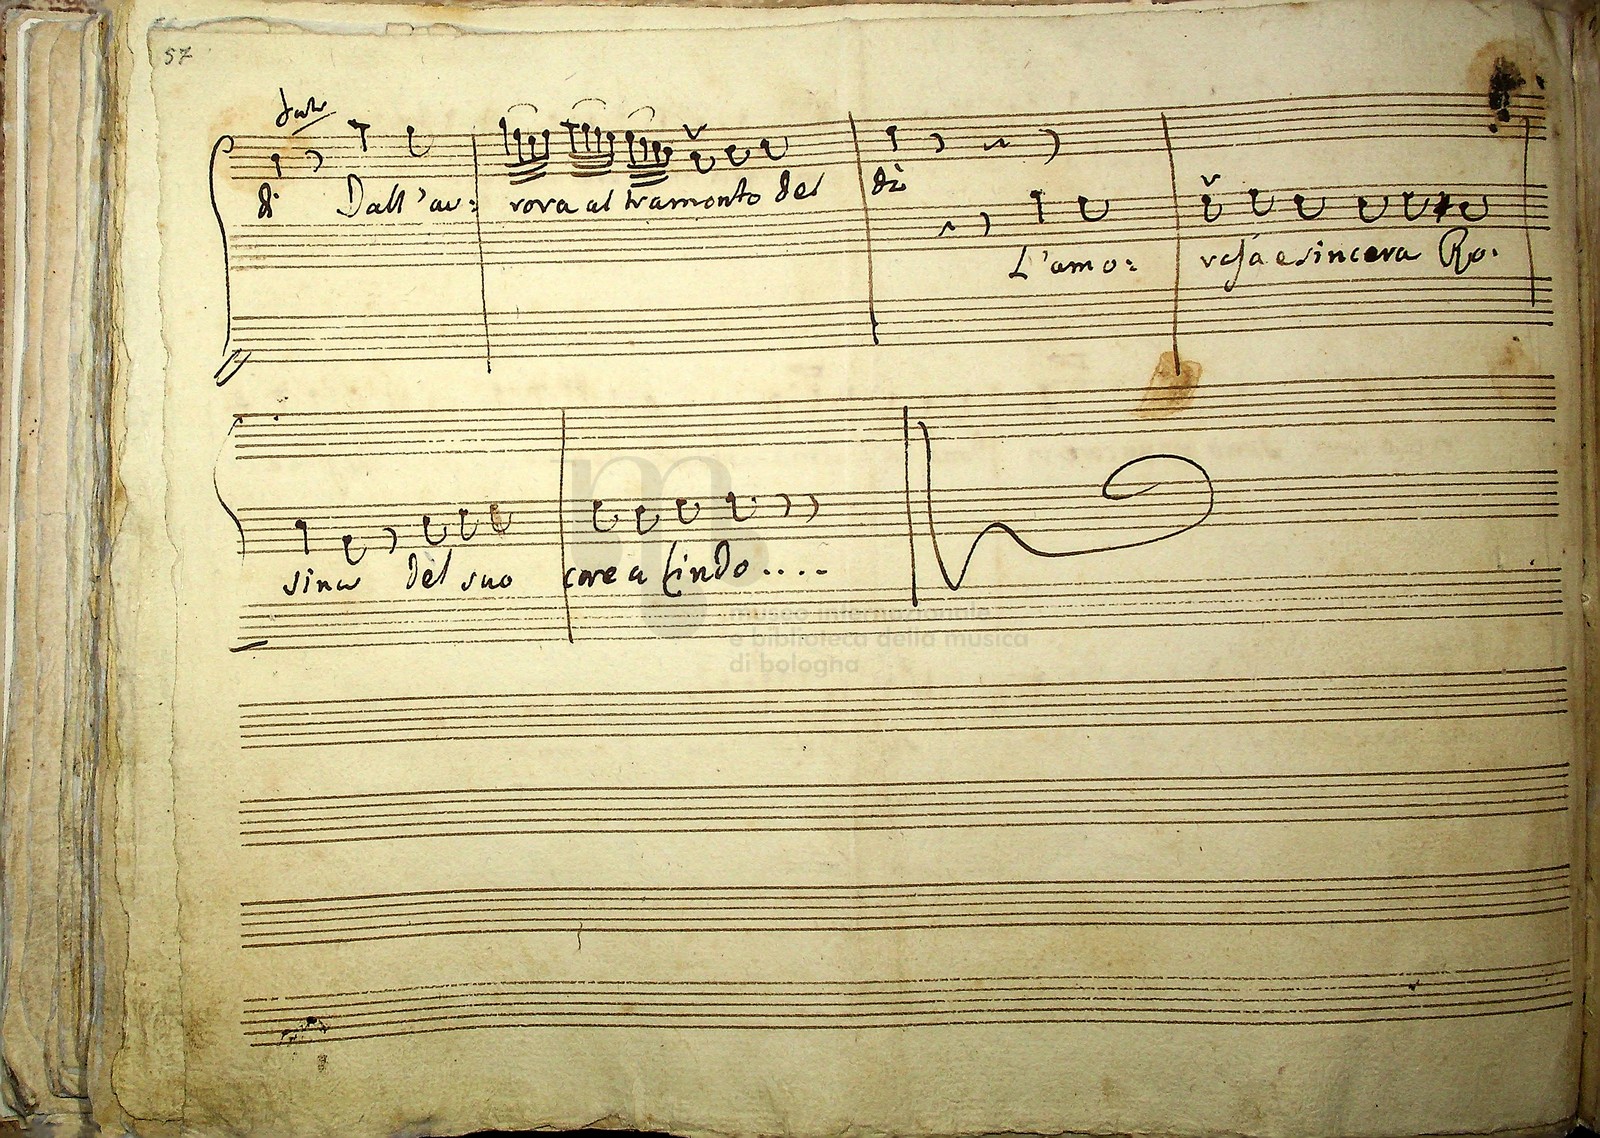 57
dì Dall'au: rora al tramonto del dì
L'amo: rosa e sincera Ro:
sina del suo core a Lindo....
museo internazionale
e biblioteca della musica
di bologna